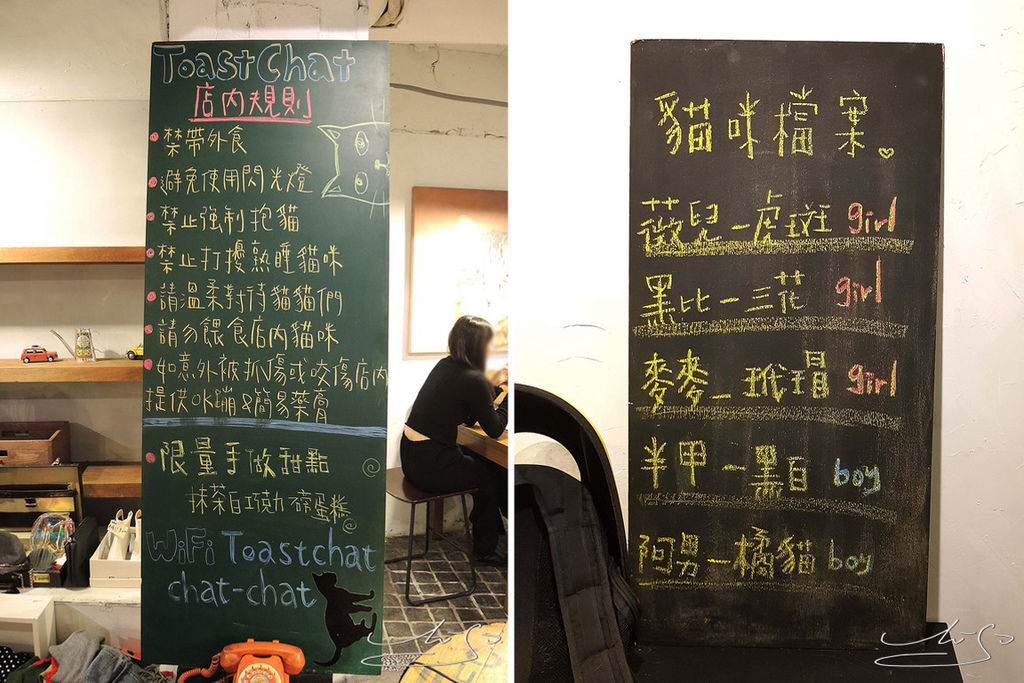 ToastChat
店內規則
禁帶外食
避免使用閃光燈
禁止強制抱貓
禁止打擾熟睡貓咪
請溫柔對待貓貓們
請勿餵食店內貓咪
如意外被抓傷或咬傷店內
提供OK蹦&簡易藥膏
限量手做甜點
抹茶白巧克力磅蛋糕
WiFi Toastchat
chat-chat
貓咪檔案
薇兒－虎斑 girl
黑比－三花 girl
麥麥－玳瑁 girl
半甲－黑白 boy
阿男－橘貓 boy